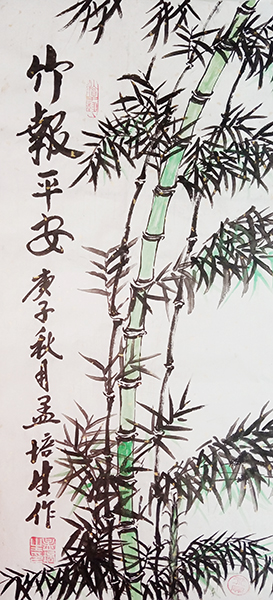 竹報平安
庚子秋月孟培生作